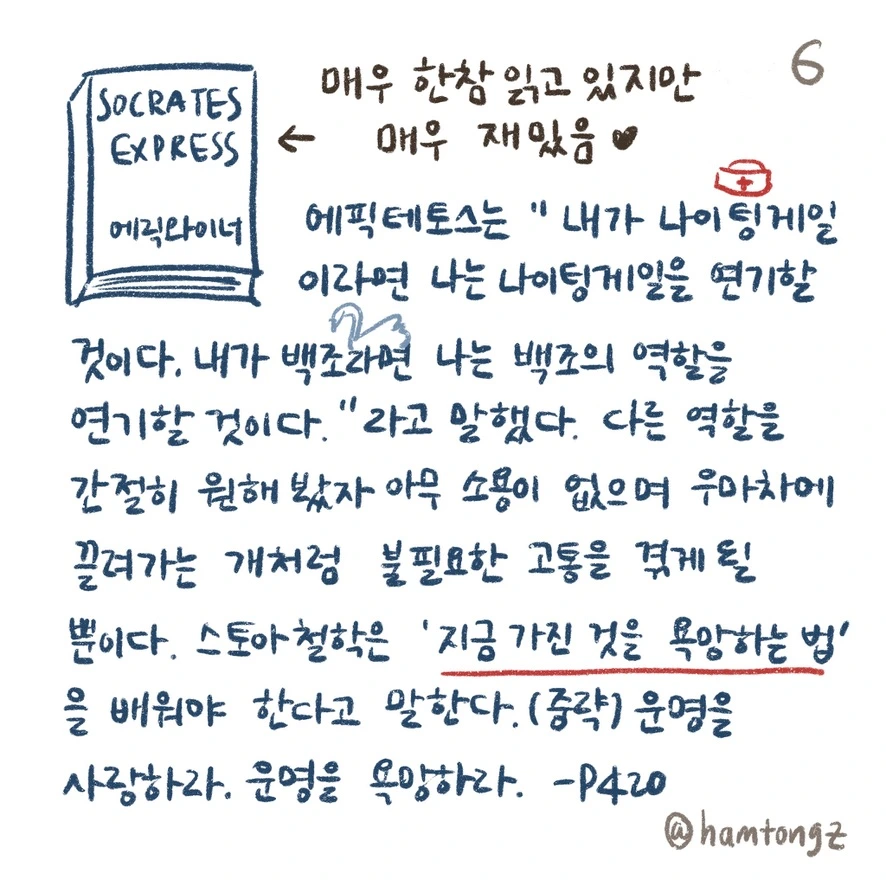 6
매우 한참 읽고 있지만
← 매우 재밌음 ♥
SOCRATES
EXPRESS
에릭와이너
에픽테토스는 " 내가 나이팅게일
이라면 나는 나이팅게일을 연기할
것이다. 내가 백조라면 나는 백조의 역할을
연기할 것이다." 라고 말했다. 다른 역할을
간절히 원해 봤자 아무 소용이 없으며 우마차에
끌려가는 개처럼 불필요한 고통을 겪게 될
뿐이다. 스토아 철학은 '지금 가진 것을 욕망하는 법'
을 배워야 한다고 말한다. (중략) 운명을
사랑하라. 운명을 욕망하라. -P420
@hamtongz